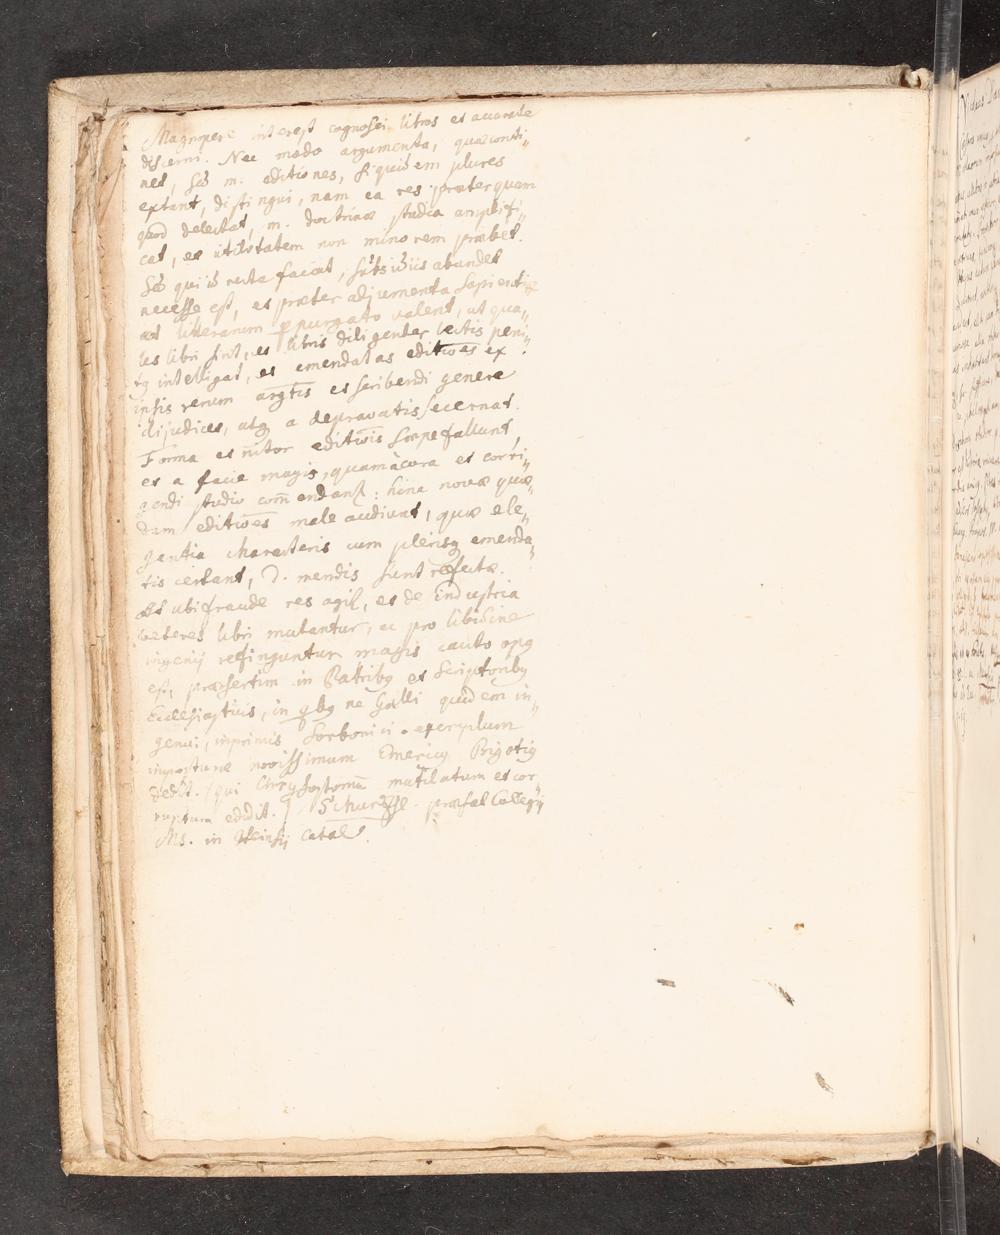 Magnopere interest cognosci libros et accurate
discerni. Nec modo argumenta, quae conti„
net, sed m. editiones, siquidem plures
extant, distingui, nam ea res praeterquam
quod delectat, m. doctrinae studia amplifi„
cat, et utilitatem non minorem praebet.
Sed qui id recte faciat, subsidiis abundet
necesse est, et praeter adjumenta sapientiae
et litterarum epurgato valent, ut qua„
les libri sint, et libris diligenter lectis peni„
tq intelligat, et emendatas editiōes ex
ipsis rerum argtis et scribendi genere
dijudicet, atq a depravatis secernat.
Forma et nitor editiōis saepe fallunt,
et a facie magis, quam a cura et corri„
gendi studio com̄endant : hinc novae quae„
dam editiōes male audiunt, quae ele„
gantia characteris cum plerisq emenda„
tis certant, d. mendis sunt refectae.
ubi fraude res agit, et de industria
veteres libri mutantur, ac pro libidine
ingenij refinguntur magis cauto opq
est, praesertim in Patribq et Scriptoribq
Ecclesiasticis, in qbq ne Galli quidem in„
genui, inprimis Sorbonici exemplum
novissimum Emericq Bigotiq
dedit. (qui Chrysostomū mutilatum et cor„
ruptum edidit.) Schurzfl. praefat Collegij
Ms. in Heinsij Catal.